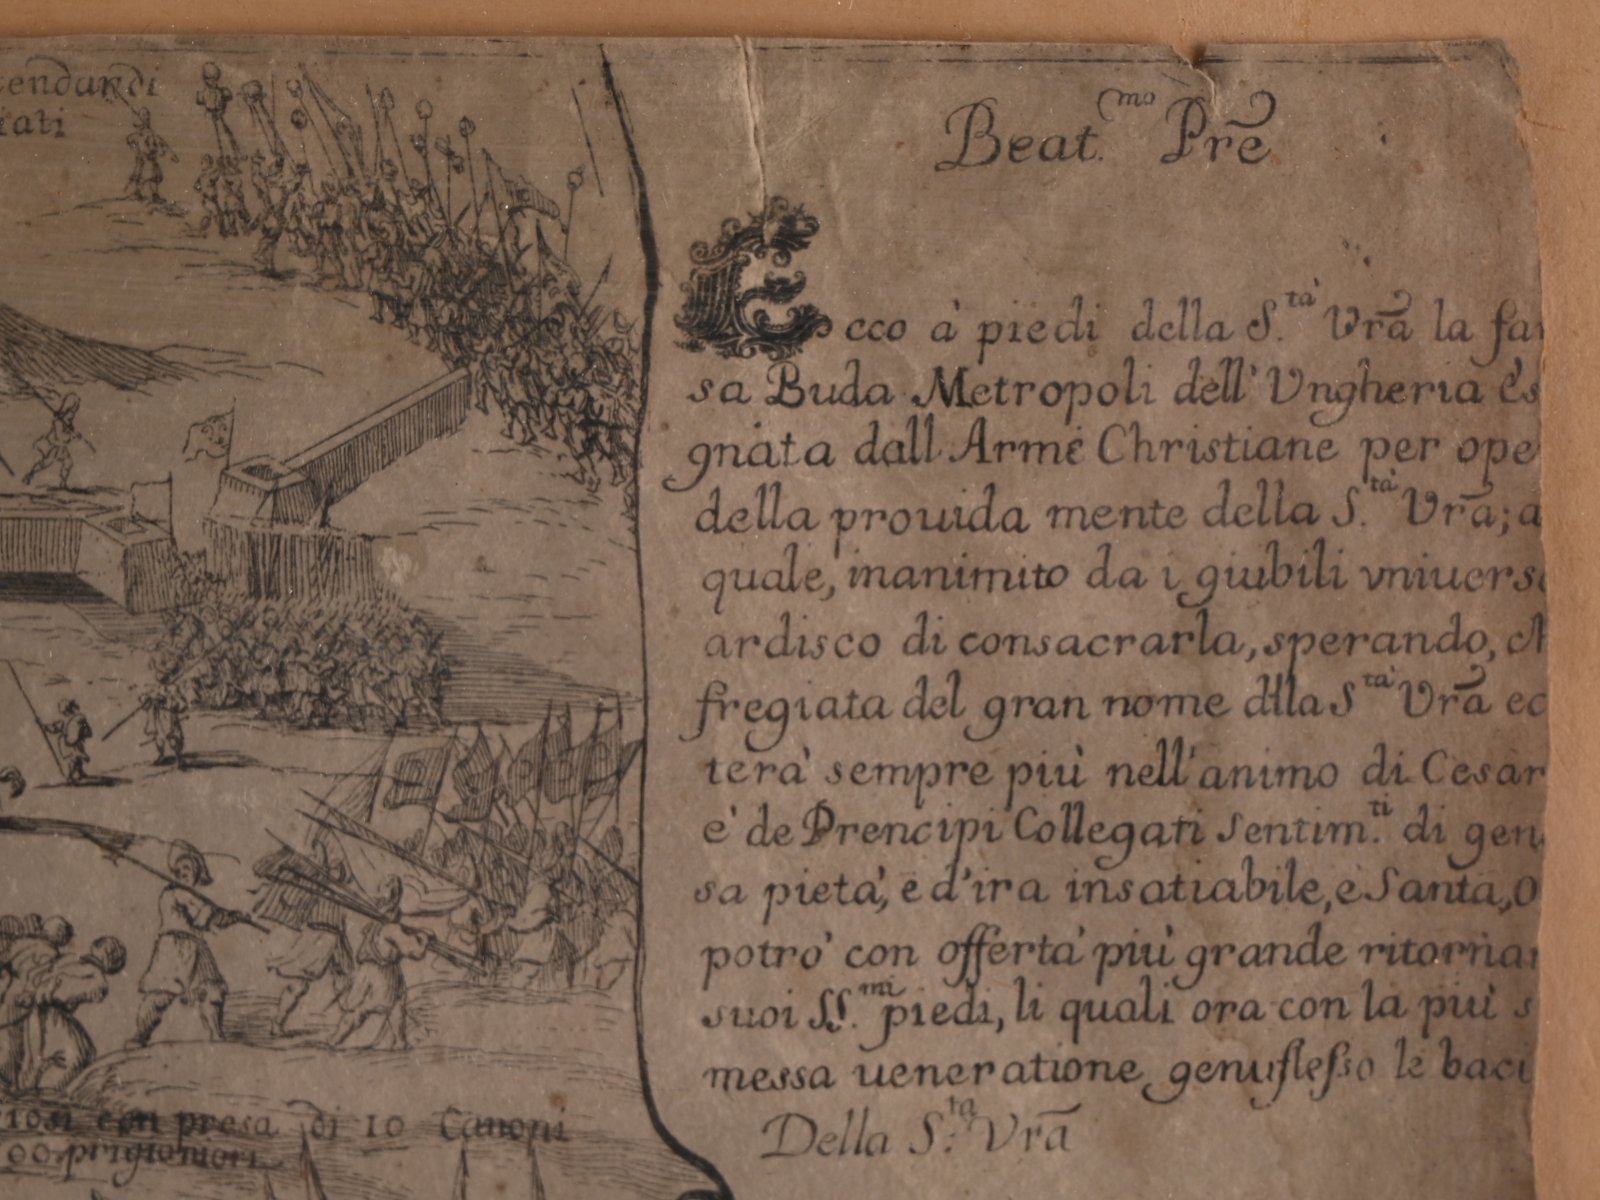 tendardi
Beat.mo Prē
Ecco à piedi della S.tà Vrā la
sa Buda Metropoli dell' Vngheria
gnata dall Arme Christiane per ope
della prouida mente della S.tà Vrā; a
quale, inanimito da i giubili vniuers
ardisco di consacrarla, sperando, ch
fregiata del gran nome dlla S.tà Vrā ec
terà sempre più nell' animo di Cesar
e' de Prencipi Collegati Sentim.ti di gen
sa pietà, e d'ira insatiabile, e Santa, O
potrò con offerta più grande ritornar
suoi SS.mi piedi, li quali ora con la più s
messa ueneratione genuflesso le baci
Della S.ta Vrā
con presa di 10 Canoni
00 prigionieri